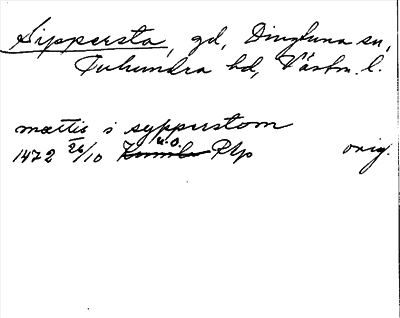 Sippersta, gd, Dingtuna sn,
Tuhundra hd, Västm. l.
mattis i syppurstom
1472 26/10 u.o. Rtp orig.